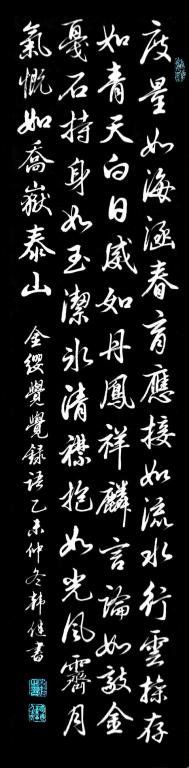 度量如海涵春育應接如流水行雲操存
如青天白日威如丹鳳祥麟言論如敲金
戛石持身如玉潔冰清襟抱如光風霽月
氣慨如喬嶽泰山
金纓覺覺錄語乙未仲冬韓書